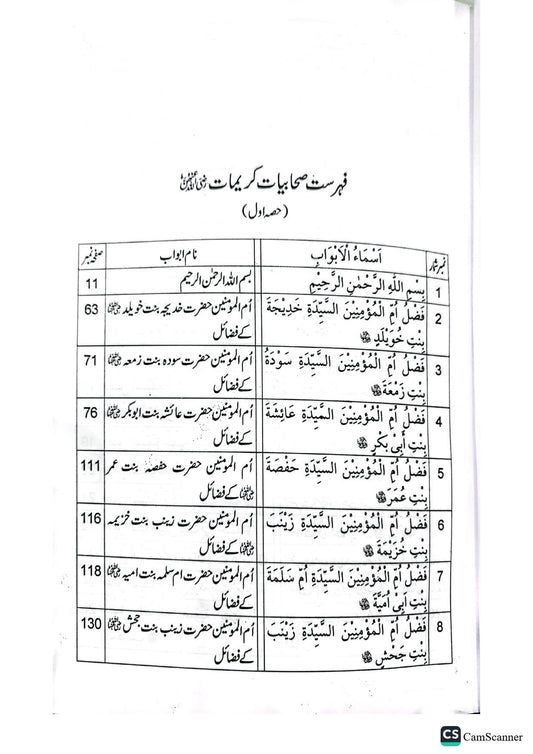 فہرست صحابیات کریمات رضی اللہ عنہن
(حصہ اول)
نمبر شمار اَسْمَاءُ الْاَبْوَابِ نام ابواب صفحہ نمبر
1 بِسْمِ اللّٰهِ الرَّحْمٰنِ الرَّحِيْمِ بسم اللہ الرحمٰن الرحیم 11
2 فَضْلُ اُمِّ الْمُؤْمِنِيْنَ السَّيِّدَةِ خَدِيْجَةَ اُم المؤمنین حضرت خدیجہ بنت خویلد رضی اللہ عنہا 63
بِنْتِ خُوَيْلَدٍ کے فضائل
3 فَضْلُ اُمِّ الْمُؤْمِنِيْنَ السَّيِّدَةِ سَوْدَةَ اُم المؤمنین حضرت سودہ بنت زمعہ رضی اللہ عنہا 71
بِنْتِ زَمْعَةَ کے فضائل
4 فَضْلُ اُمِّ الْمُؤْمِنِيْنَ السَّيِّدَةِ عَائِشَةَ اُم المؤمنین حضرت عائشہ بنت ابوبکر رضی اللہ عنہا 76
بِنْتِ اَبِيْ بَكْرٍ کے فضائل
5 فَضْلُ اُمِّ الْمُؤْمِنِيْنَ السَّيِّدَةِ حَفْصَةَ اُم المؤمنین حضرت حفصہ بنت عمر 111
بِنْتِ عُمَرَ رضی اللہ عنہا کے فضائل
6 فَضْلُ اُمِّ الْمُؤْمِنِيْنَ السَّيِّدَةِ زَيْنَبَ اُم المؤمنین حضرت زینب بنت خزیمہ 116
بِنْتِ خُزَيْمَةَ رضی اللہ عنہا کے فضائل
7 فَضْلُ اُمِّ الْمُؤْمِنِيْنَ السَّيِّدَةِ اُمِّ سَلَمَةَ اُم المؤمنین حضرت ام سلمہ بنت امیہ رضی اللہ عنہا 118
بِنْتِ اَبِيْ اُمَيَّةَ کے فضائل
8 فَضْلُ اُمِّ الْمُؤْمِنِيْنَ السَّيِّدَةِ زَيْنَبَ اُم المؤمنین حضرت زینب بنت جحش رضی اللہ عنہا 130
بِنْتِ جَحْشٍ کے فضائل
CS CamScanner